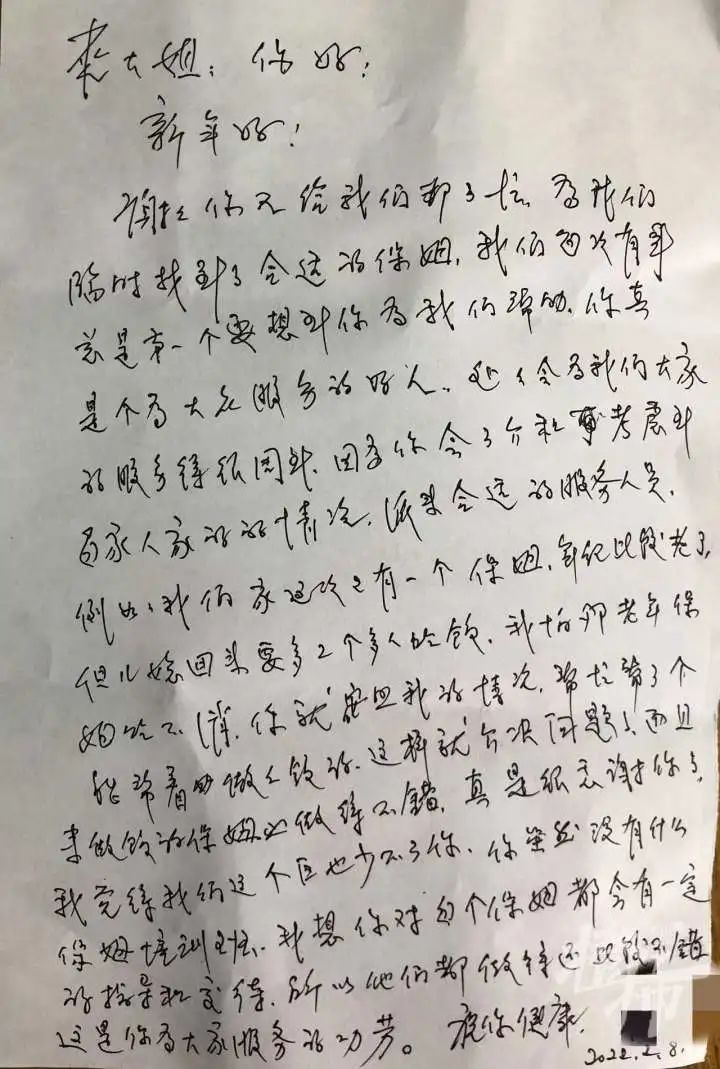 大姐：你好！
新年好！
谢谢你又给我们帮了忙，为我们
临时找到了合适的保姆，我们每次有事
总是第一个要想到你为我们帮助，你真
是个为大众服务的好人，处处会为我们大家
的服务得很周到，因为你会了介和考虑到
百家人家的的情况，派来合适的服务人员，
例如，我们家这次已有一个保姆，年纪比较老了，
但儿媳回来要多2个多人吃饭，我怕那老年保
姆吃不消，你就按照我的情况，帮忙帮了个
能帮着助做做饭的，这样就解决问题了，而且
来做饭的保姆也做得不错，真是很感谢你了，
我觉得我们这个区也少不了你，你虽然没有什么
保姆培训班，我想你对每个保姆都会有一定
的指导和交待，所以他们都做得还比较不错
这是你为大家服务的功劳。祝你健康，
2022.2.8.